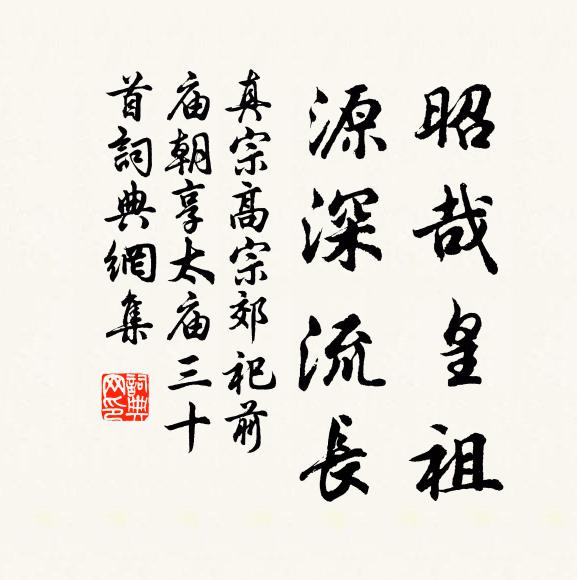 昭哉皇祖
源深流長
真宗高宗郊祀前
庙朝享太庙三十
首詞典網集
詞典
网印